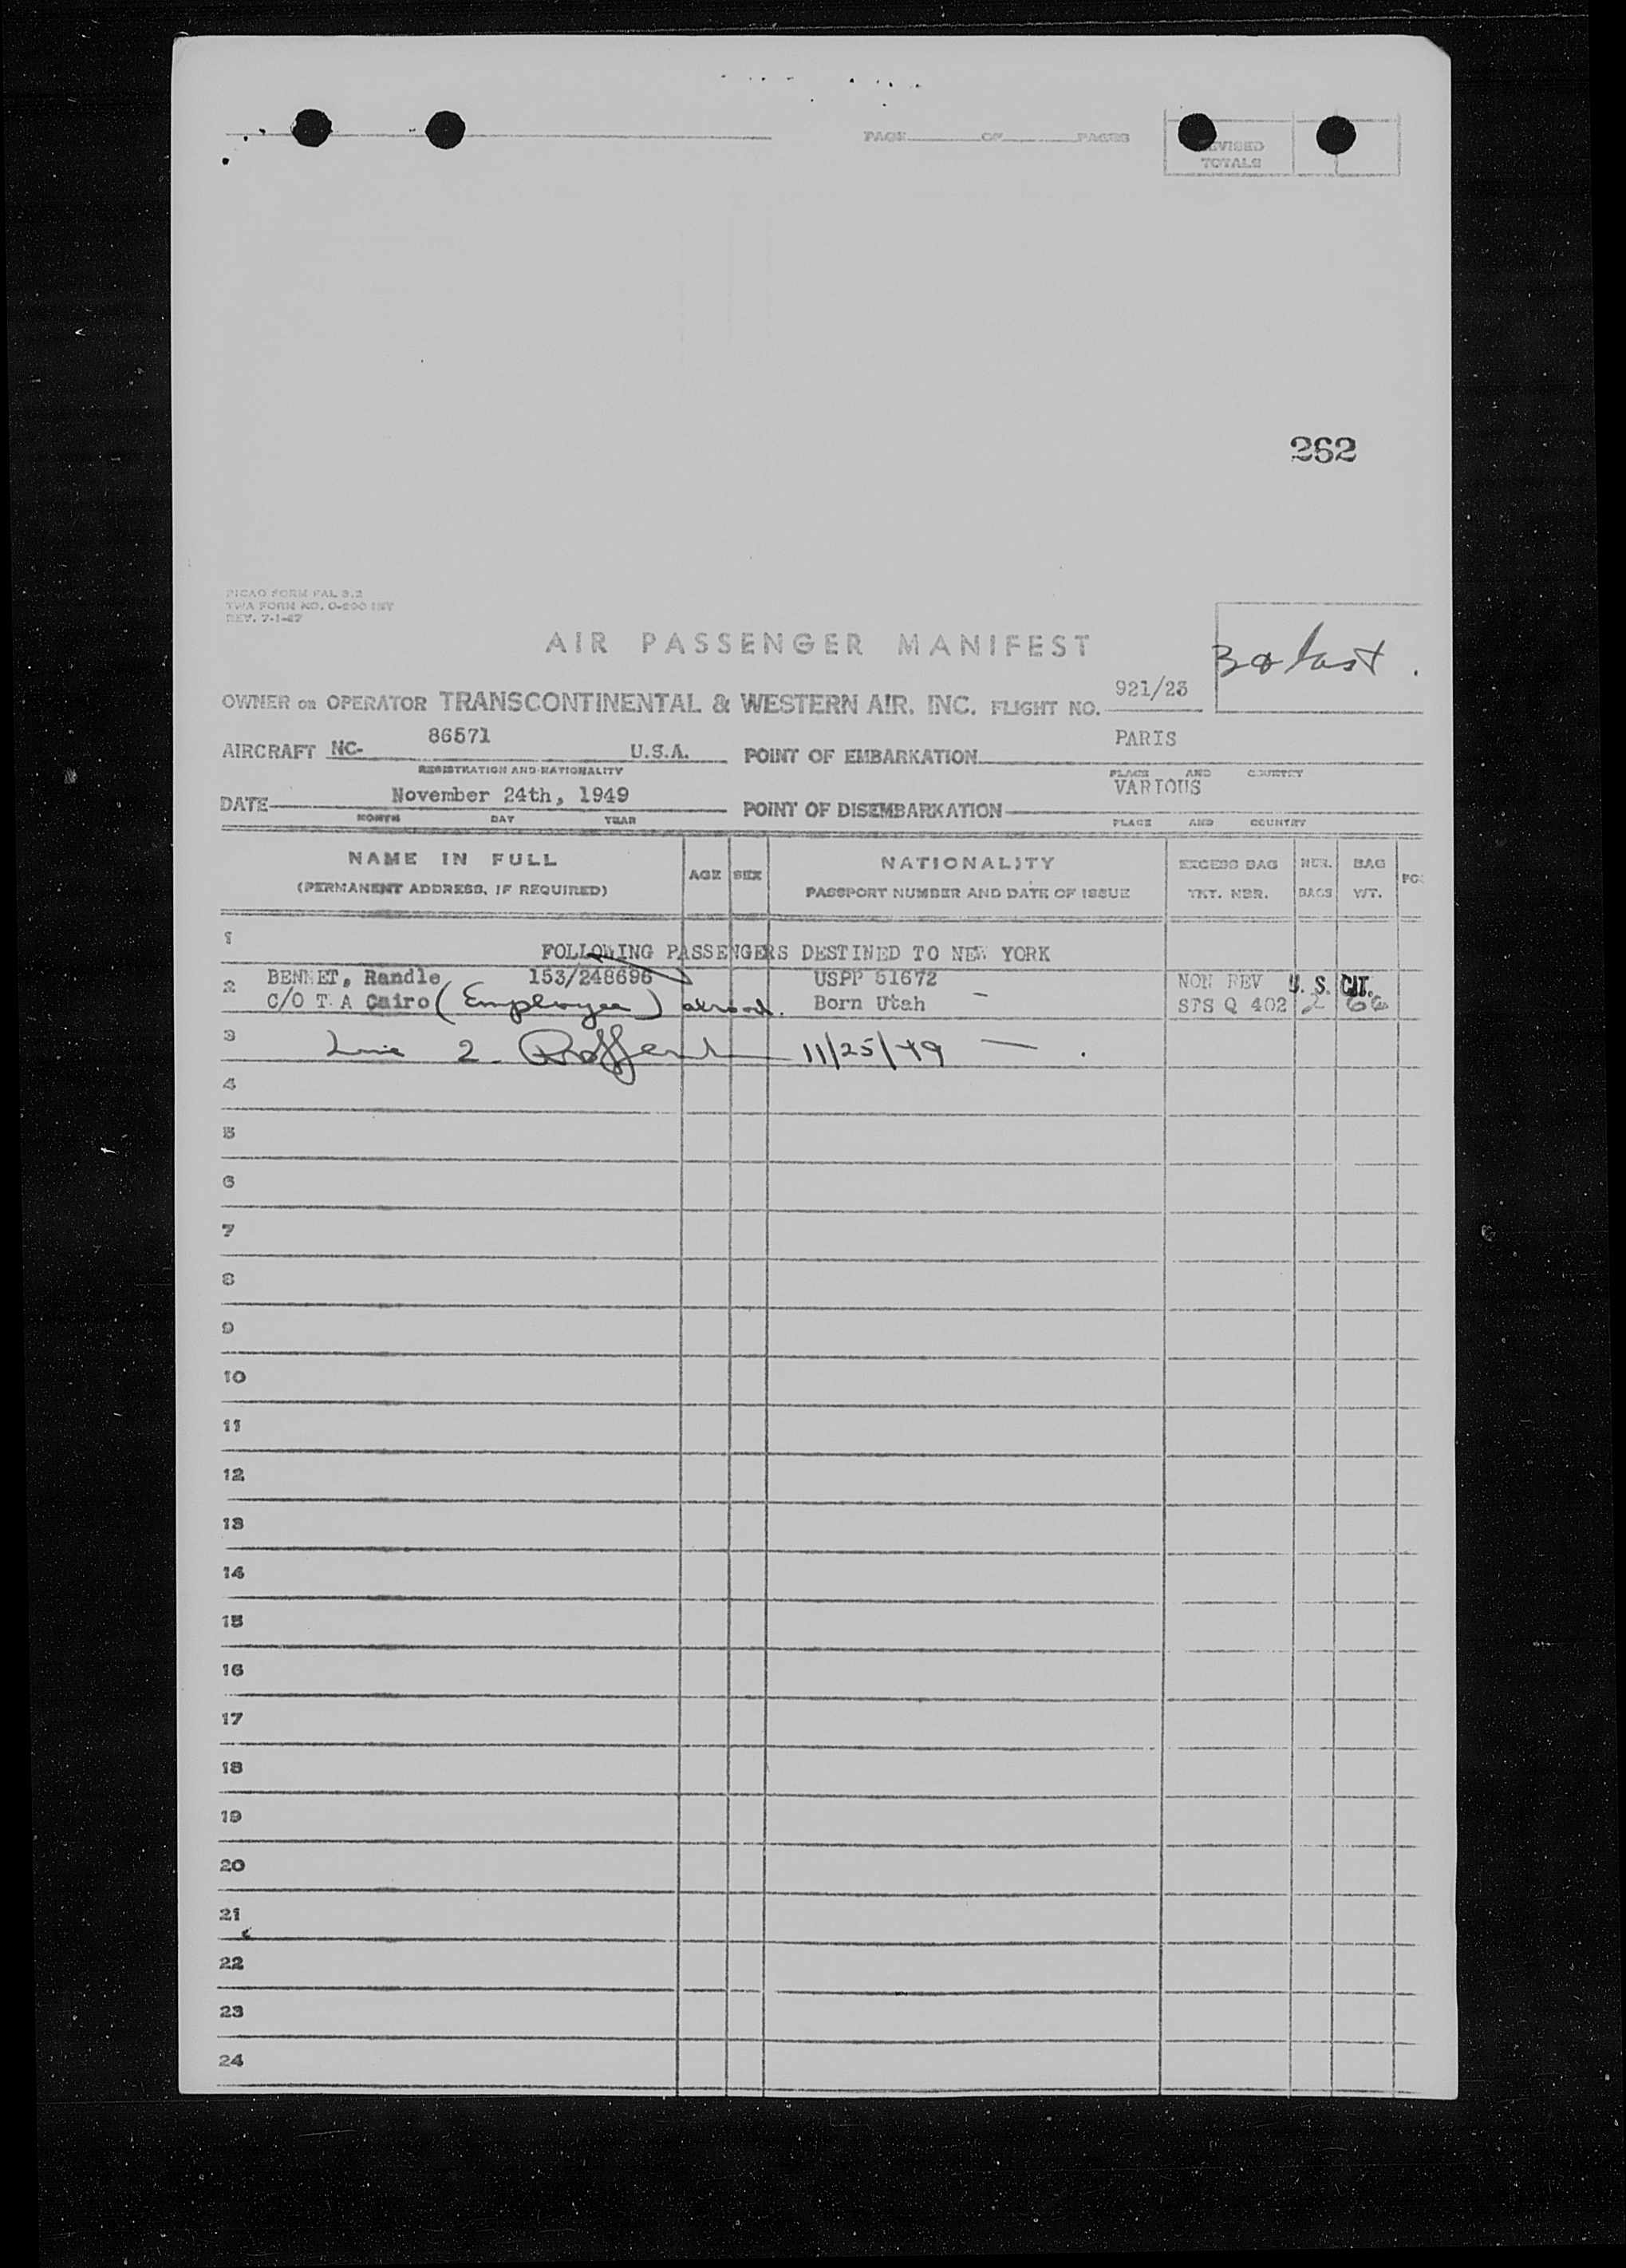 PAGE OF PAGES
REVISED
TOTALS
262
PICAO FORM FAL 3.2
TWA FORM NO. O-200 INT
REV. 7-1-47
AIR PASSENGER MANIFEST
OWNER OR OPERATOR TRANSCONTINENTAL & WESTERN AIR, INC. FLIGHT NO. 921/23
AIRCRAFT NC- 86571 U.S.A. POINT OF EMBARKATION PARIS
REGISTRATION AND NATIONALITY PLACE AND COUNTRY
DATE November 24th, 1949 POINT OF DISEMBARKATION VARIOUS
MONTH DAY YEAR PLACE AND COUNTRY
NAME IN FULL AGE SEX NATIONALITY EXCESS BAG NBR. BAG
(PERMANENT ADDRESS, IF REQUIRED) PASSPORT NUMBER AND DATE OF ISSUE TKT. NBR. BAGS WT.
1 FOLLOWING PASSENGERS DESTINED TO NEW YORK
2 BENNET, Randle 153/248696 USPP 51672 NON REV U. S. CIT.
C/O T A Cairo (Employee) abroad. Born Utah - STS Q 402 2 66
3 Line 2. 11/25/49 —
4
5
6
7
8
9
10
11
12
13
14
15
16
17
18
19
20
21
22
23
24